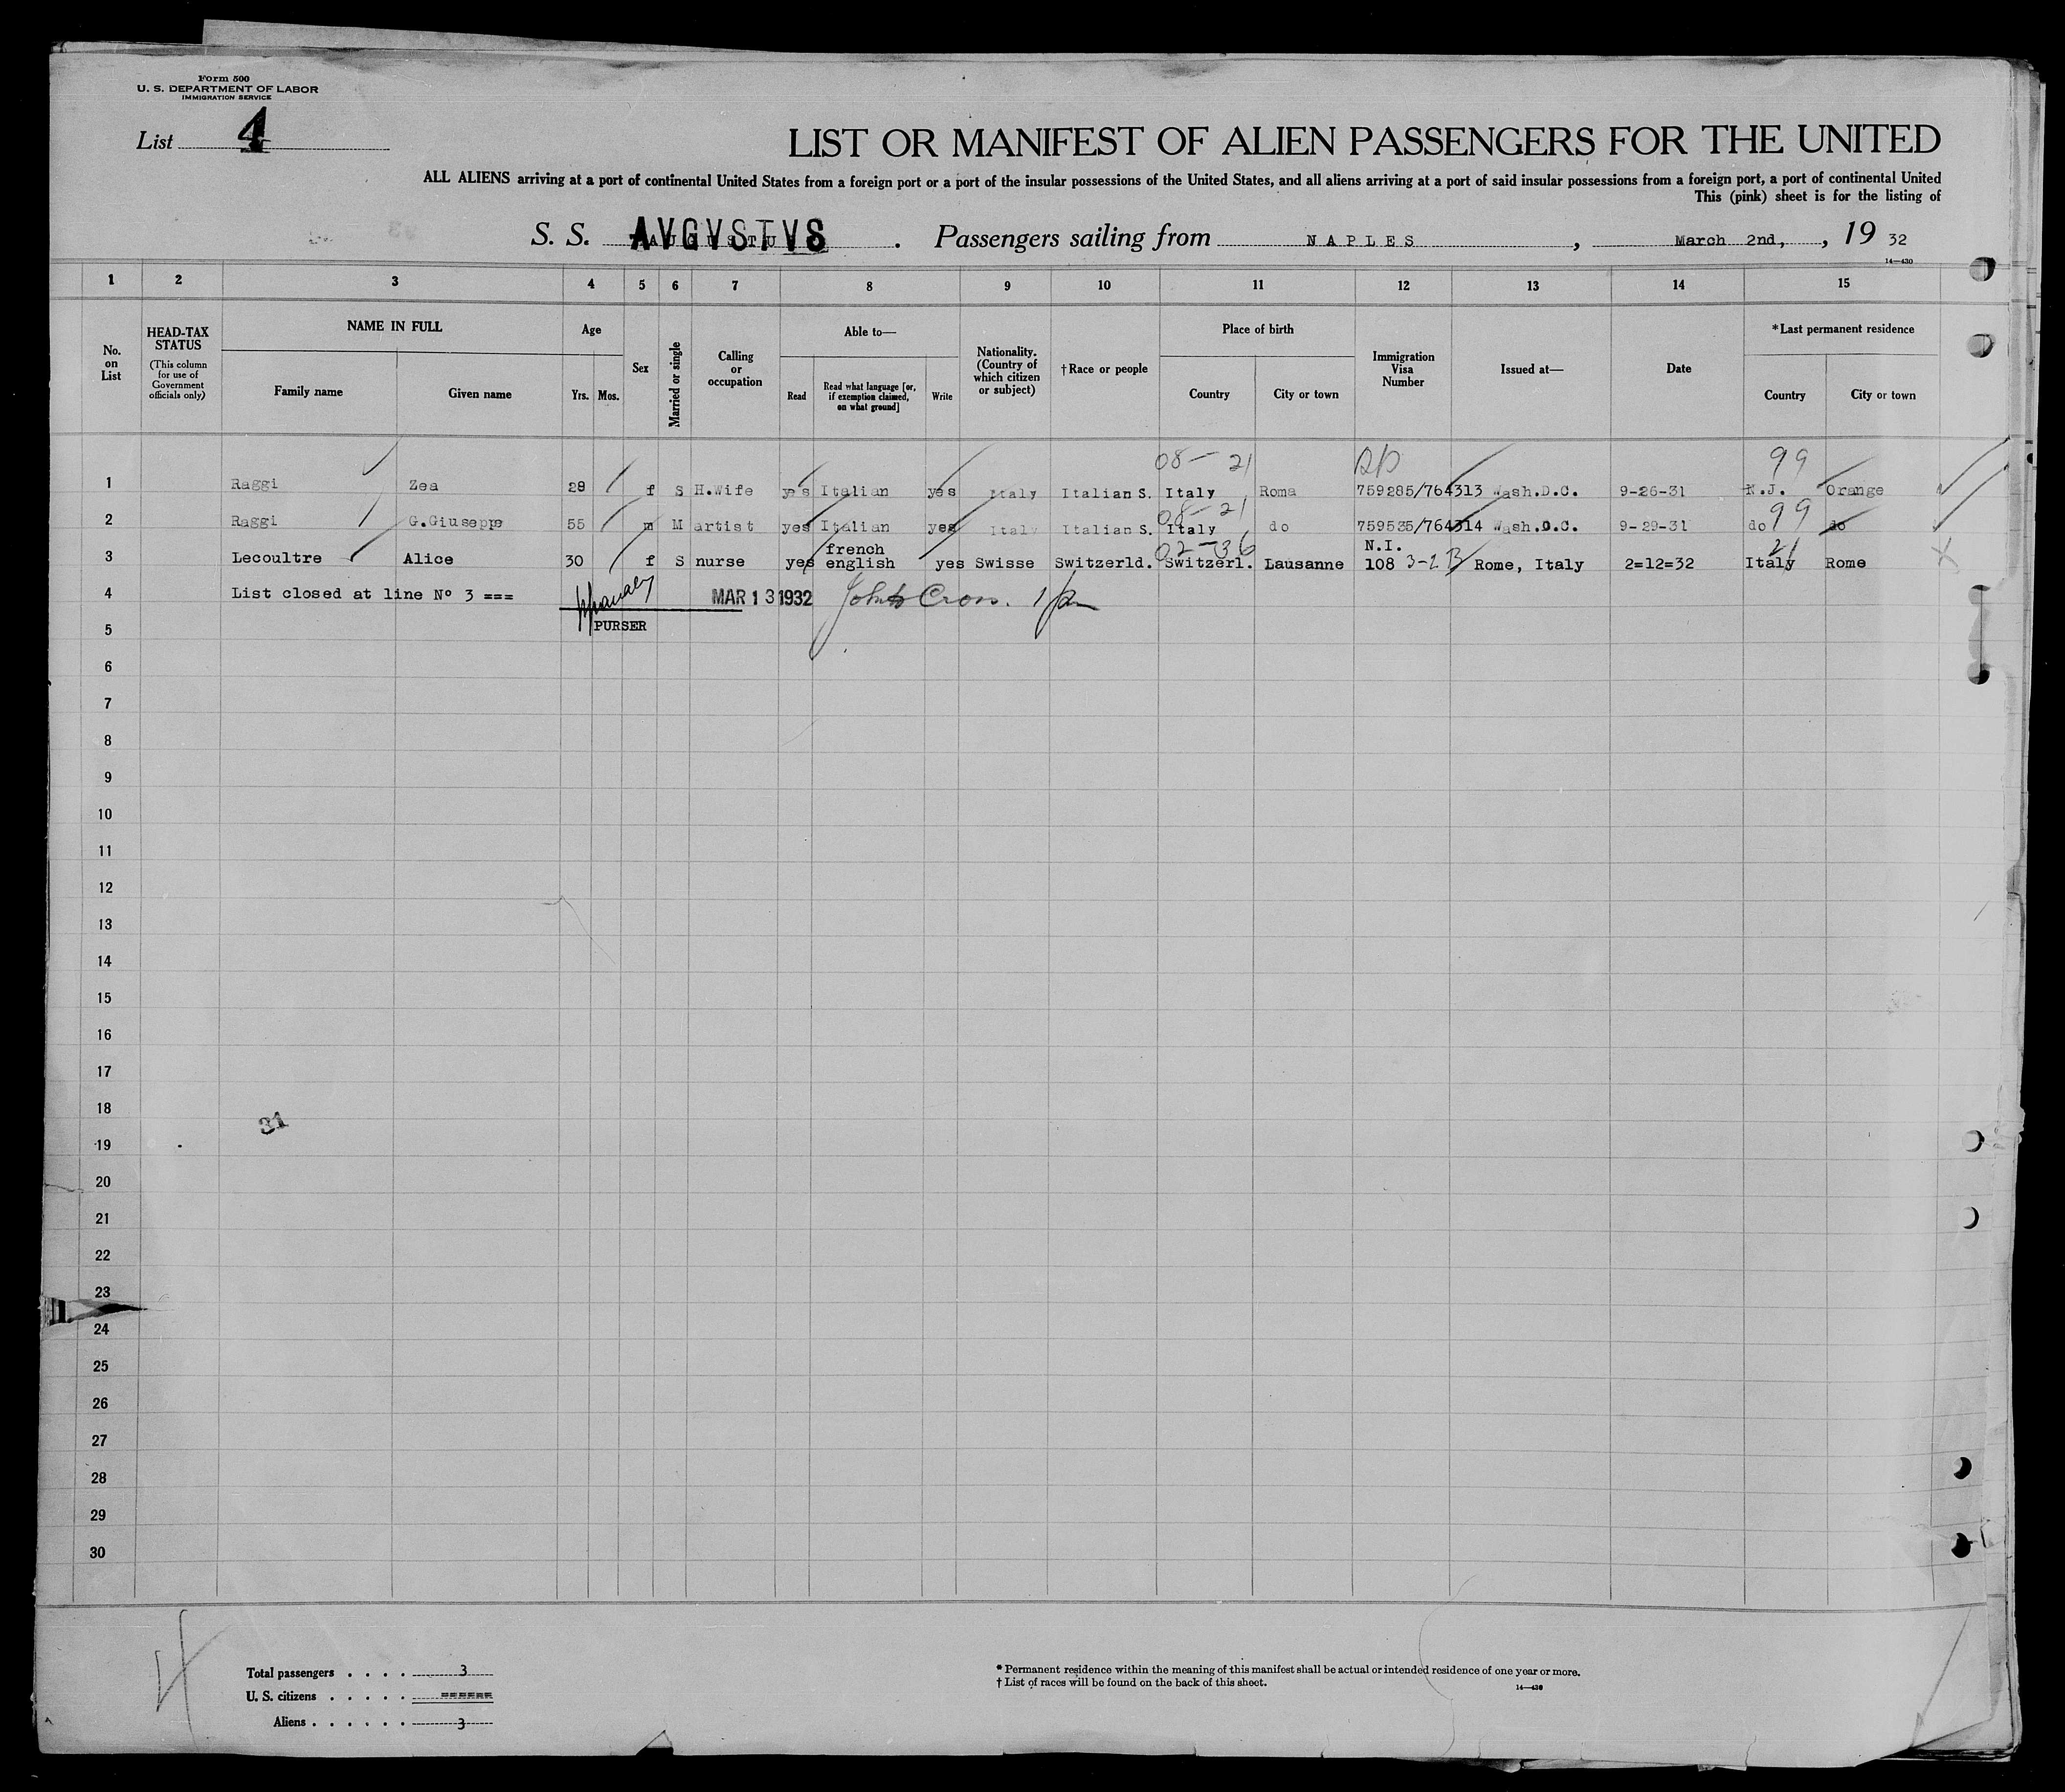 Form 500
U. S. DEPARTMENT OF LABOR
IMMIGRATION SERVICE
List 4
LIST OR MANIFEST OF ALIEN PASSENGERS FOR THE UNITED
ALL ALIENS arriving at a port of continental United States from a foreign port or a port of the insular possessions of the United States, and all aliens arriving at a port of said insular possessions from a foreign port, a port of continental United
This (pink) sheet is for the listing of
S. S. AVGVSTVS . Passengers sailing from NAPLES , March 2nd, , 19 32
14—430
1 2 3 4 5 6 7 8 9 10 11 12 13 14 15
No. on List
HEAD-TAX STATUS
(This column for use of Government officials only)
NAME IN FULL
Family name Given name
Age
Yrs. Mos.
Sex
Married or single
Calling or occupation
Able to—
Read
Read what language [or, if exemption claimed, on what ground]
Write
Nationality. (Country of which citizen or subject)
†Race or people
Place of birth
Country City or town
Immigration Visa Number
Issued at—
Date
*Last permanent residence
Country City or town
08— 21 99
1 Raggi Zea 28 f S H.Wife yes Italian yes Italy Italian S. Italy Roma 759285/764313 Wash.D.C. 9-26-31 N.J. Orange
08-21 99
2 Raggi G.Giuseppe 55 m M artist yes Italian yes Italy Italian S. Italy do 759535/764314 Wash.D.C. 9-29-31 do do
french 02-36 N.I. 21
3 Lecoultre Alice 30 f S nurse yes english yes Swisse Switzerld. Switzerl. Lausanne 108 Rome, Italy 2=12=32 Italy Rome
4 List closed at line Nº 3 === MAR 13 1932 John Cross.
5 PURSER
6
7
8
9
10
11
12
13
14
15
16
17
18
31
19
20
21
22
23
24
25
26
27
28
29
30
4
Total passengers . . . . 3
U. S. citizens . . . . . ======
Aliens . . . . . . 3
* Permanent residence within the meaning of this manifest shall be actual or intended residence of one year or more.
† List of races will be found on the back of this sheet.
14—430